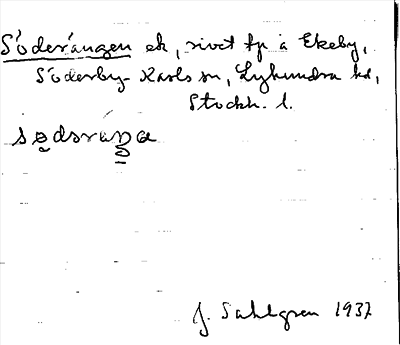 Söderängen ek, rivet tp å Ekeby,
Söderby-Karls sn, Lyhundra hd,
Stockh. l.
sødəräŋa
J. Sahlgren 1937